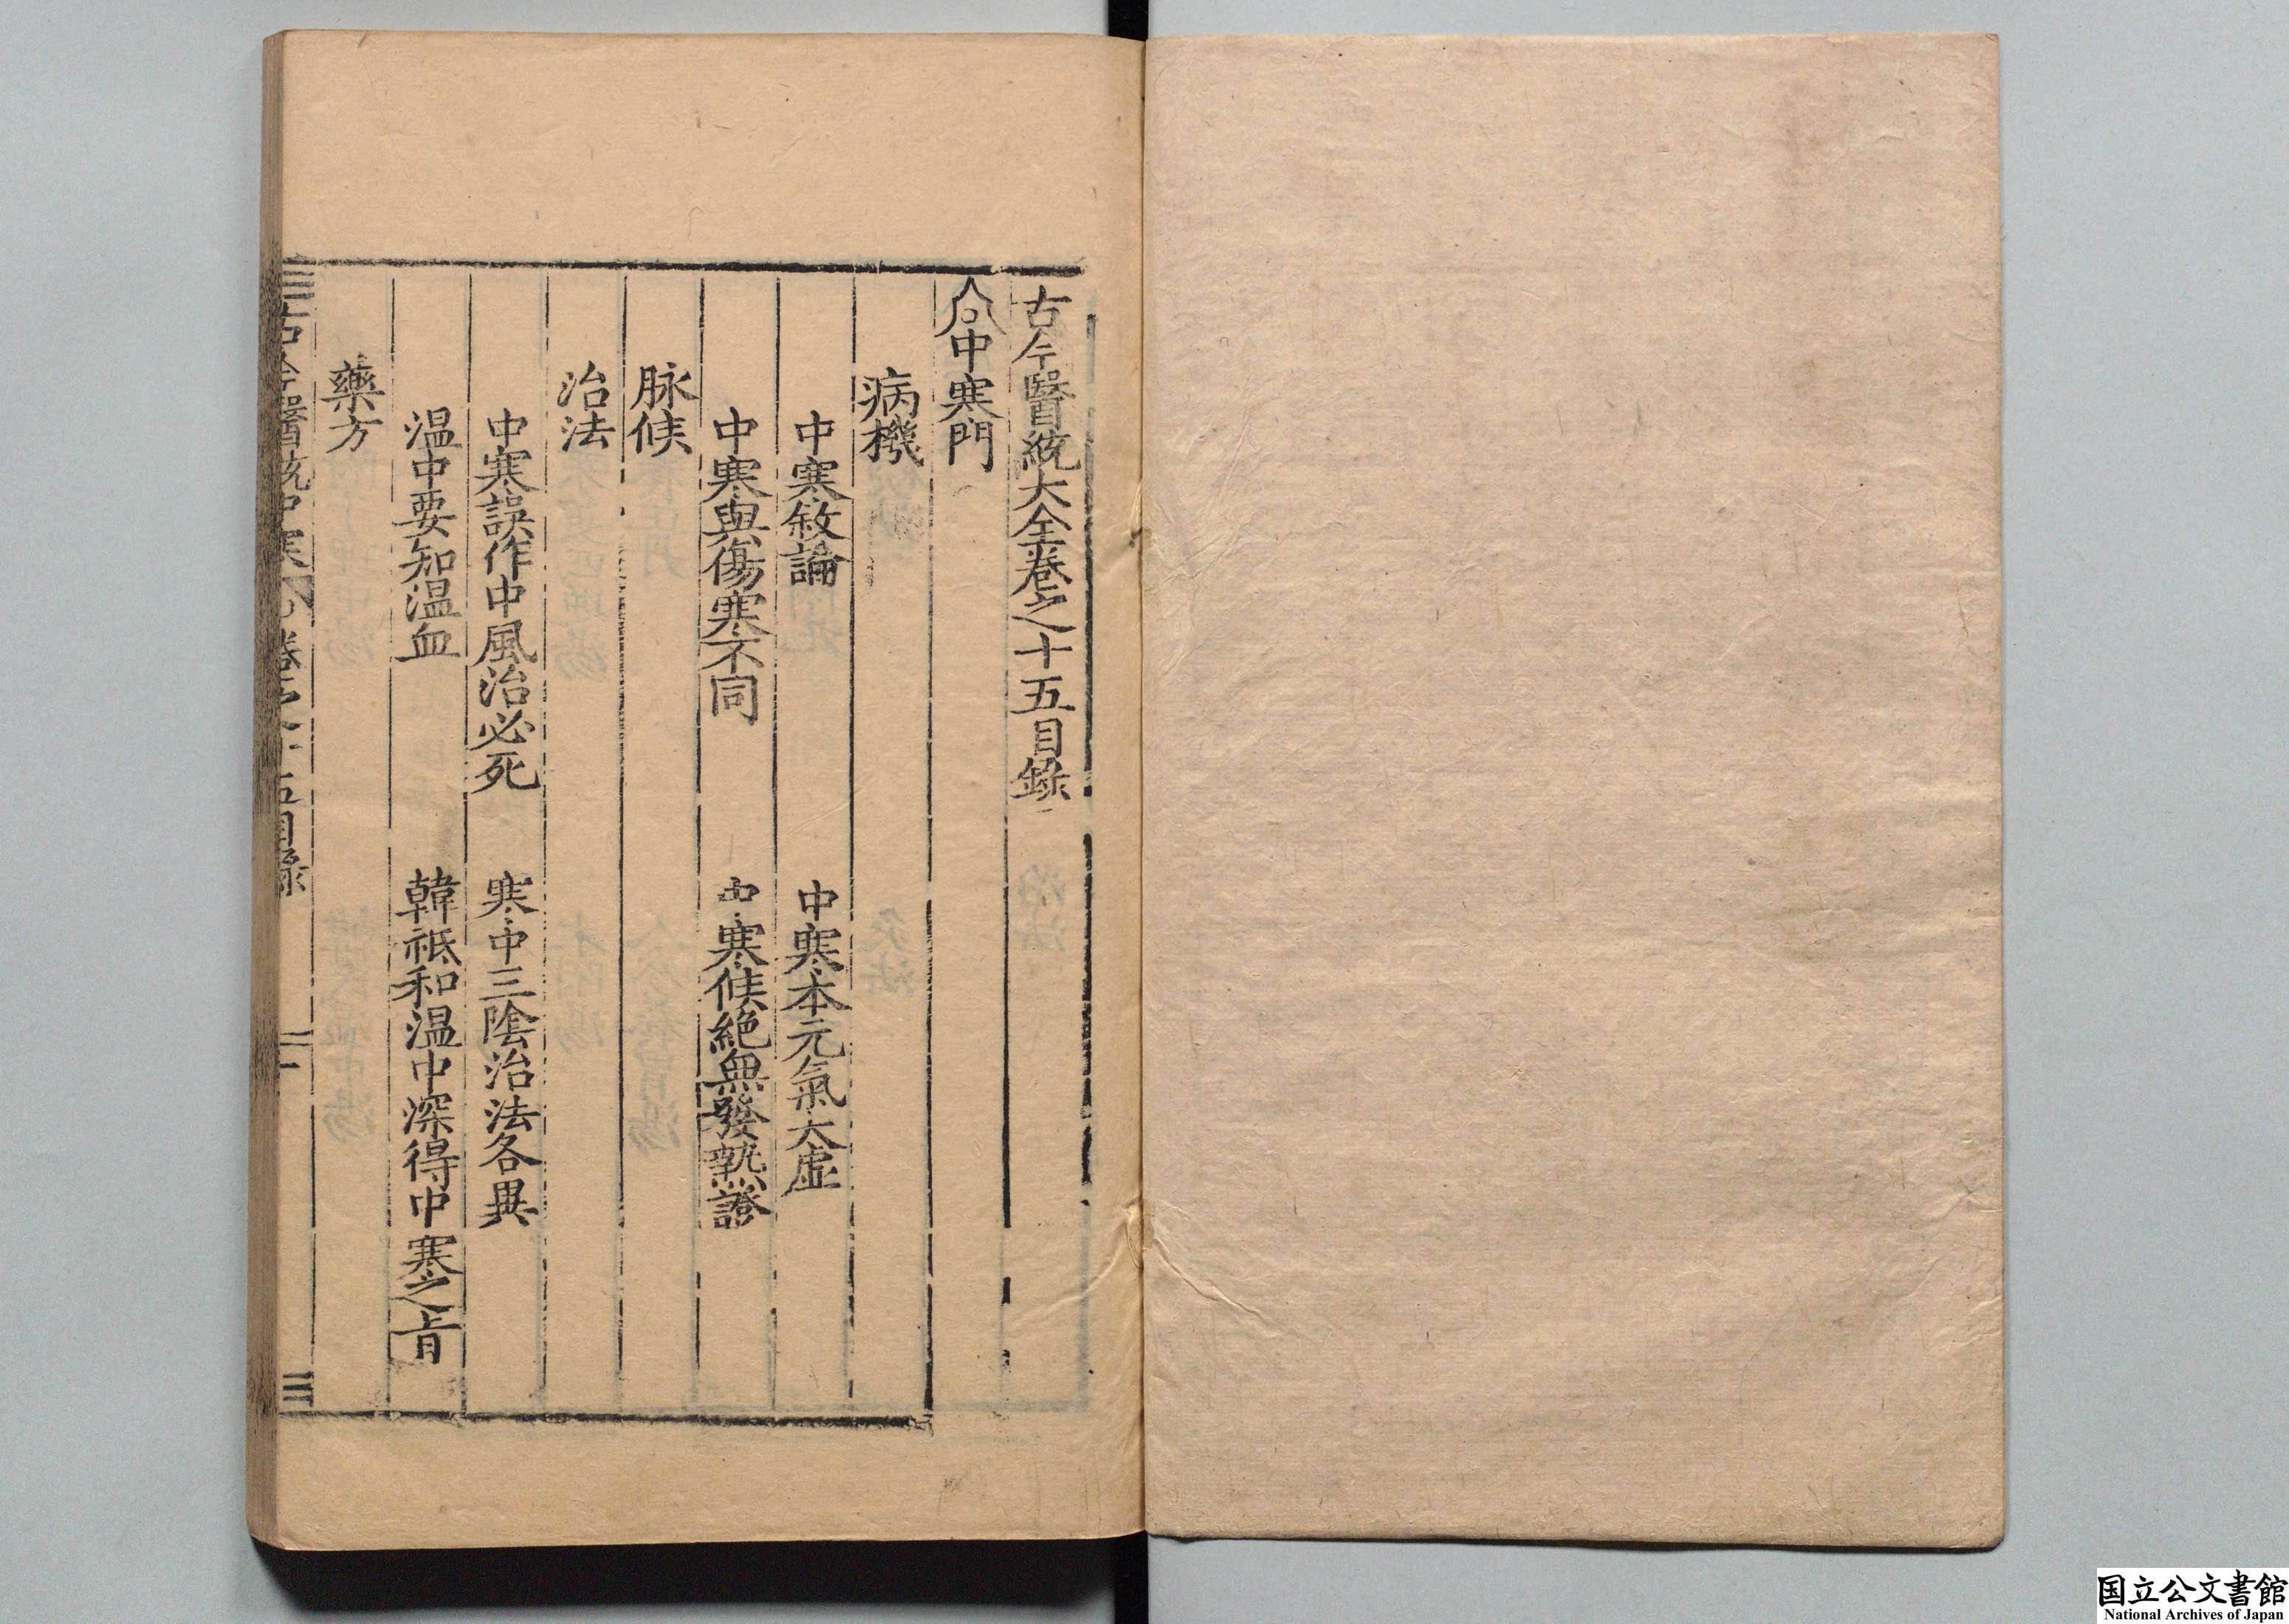 古今醫統大全卷之十五目錄
中寒門
病機
中寒敘論　中寒本元氣大虛
中寒與傷寒不同　中寒候絶無發熱證
脉候
治法
中寒誤作中風治必死　寒中三陰治法各異
温中要知温血　韓祗和温中深得中寒之旨
藥方
古今醫統中寒　卷之十五目錄　一
国立公文書館
National Archives of Japan